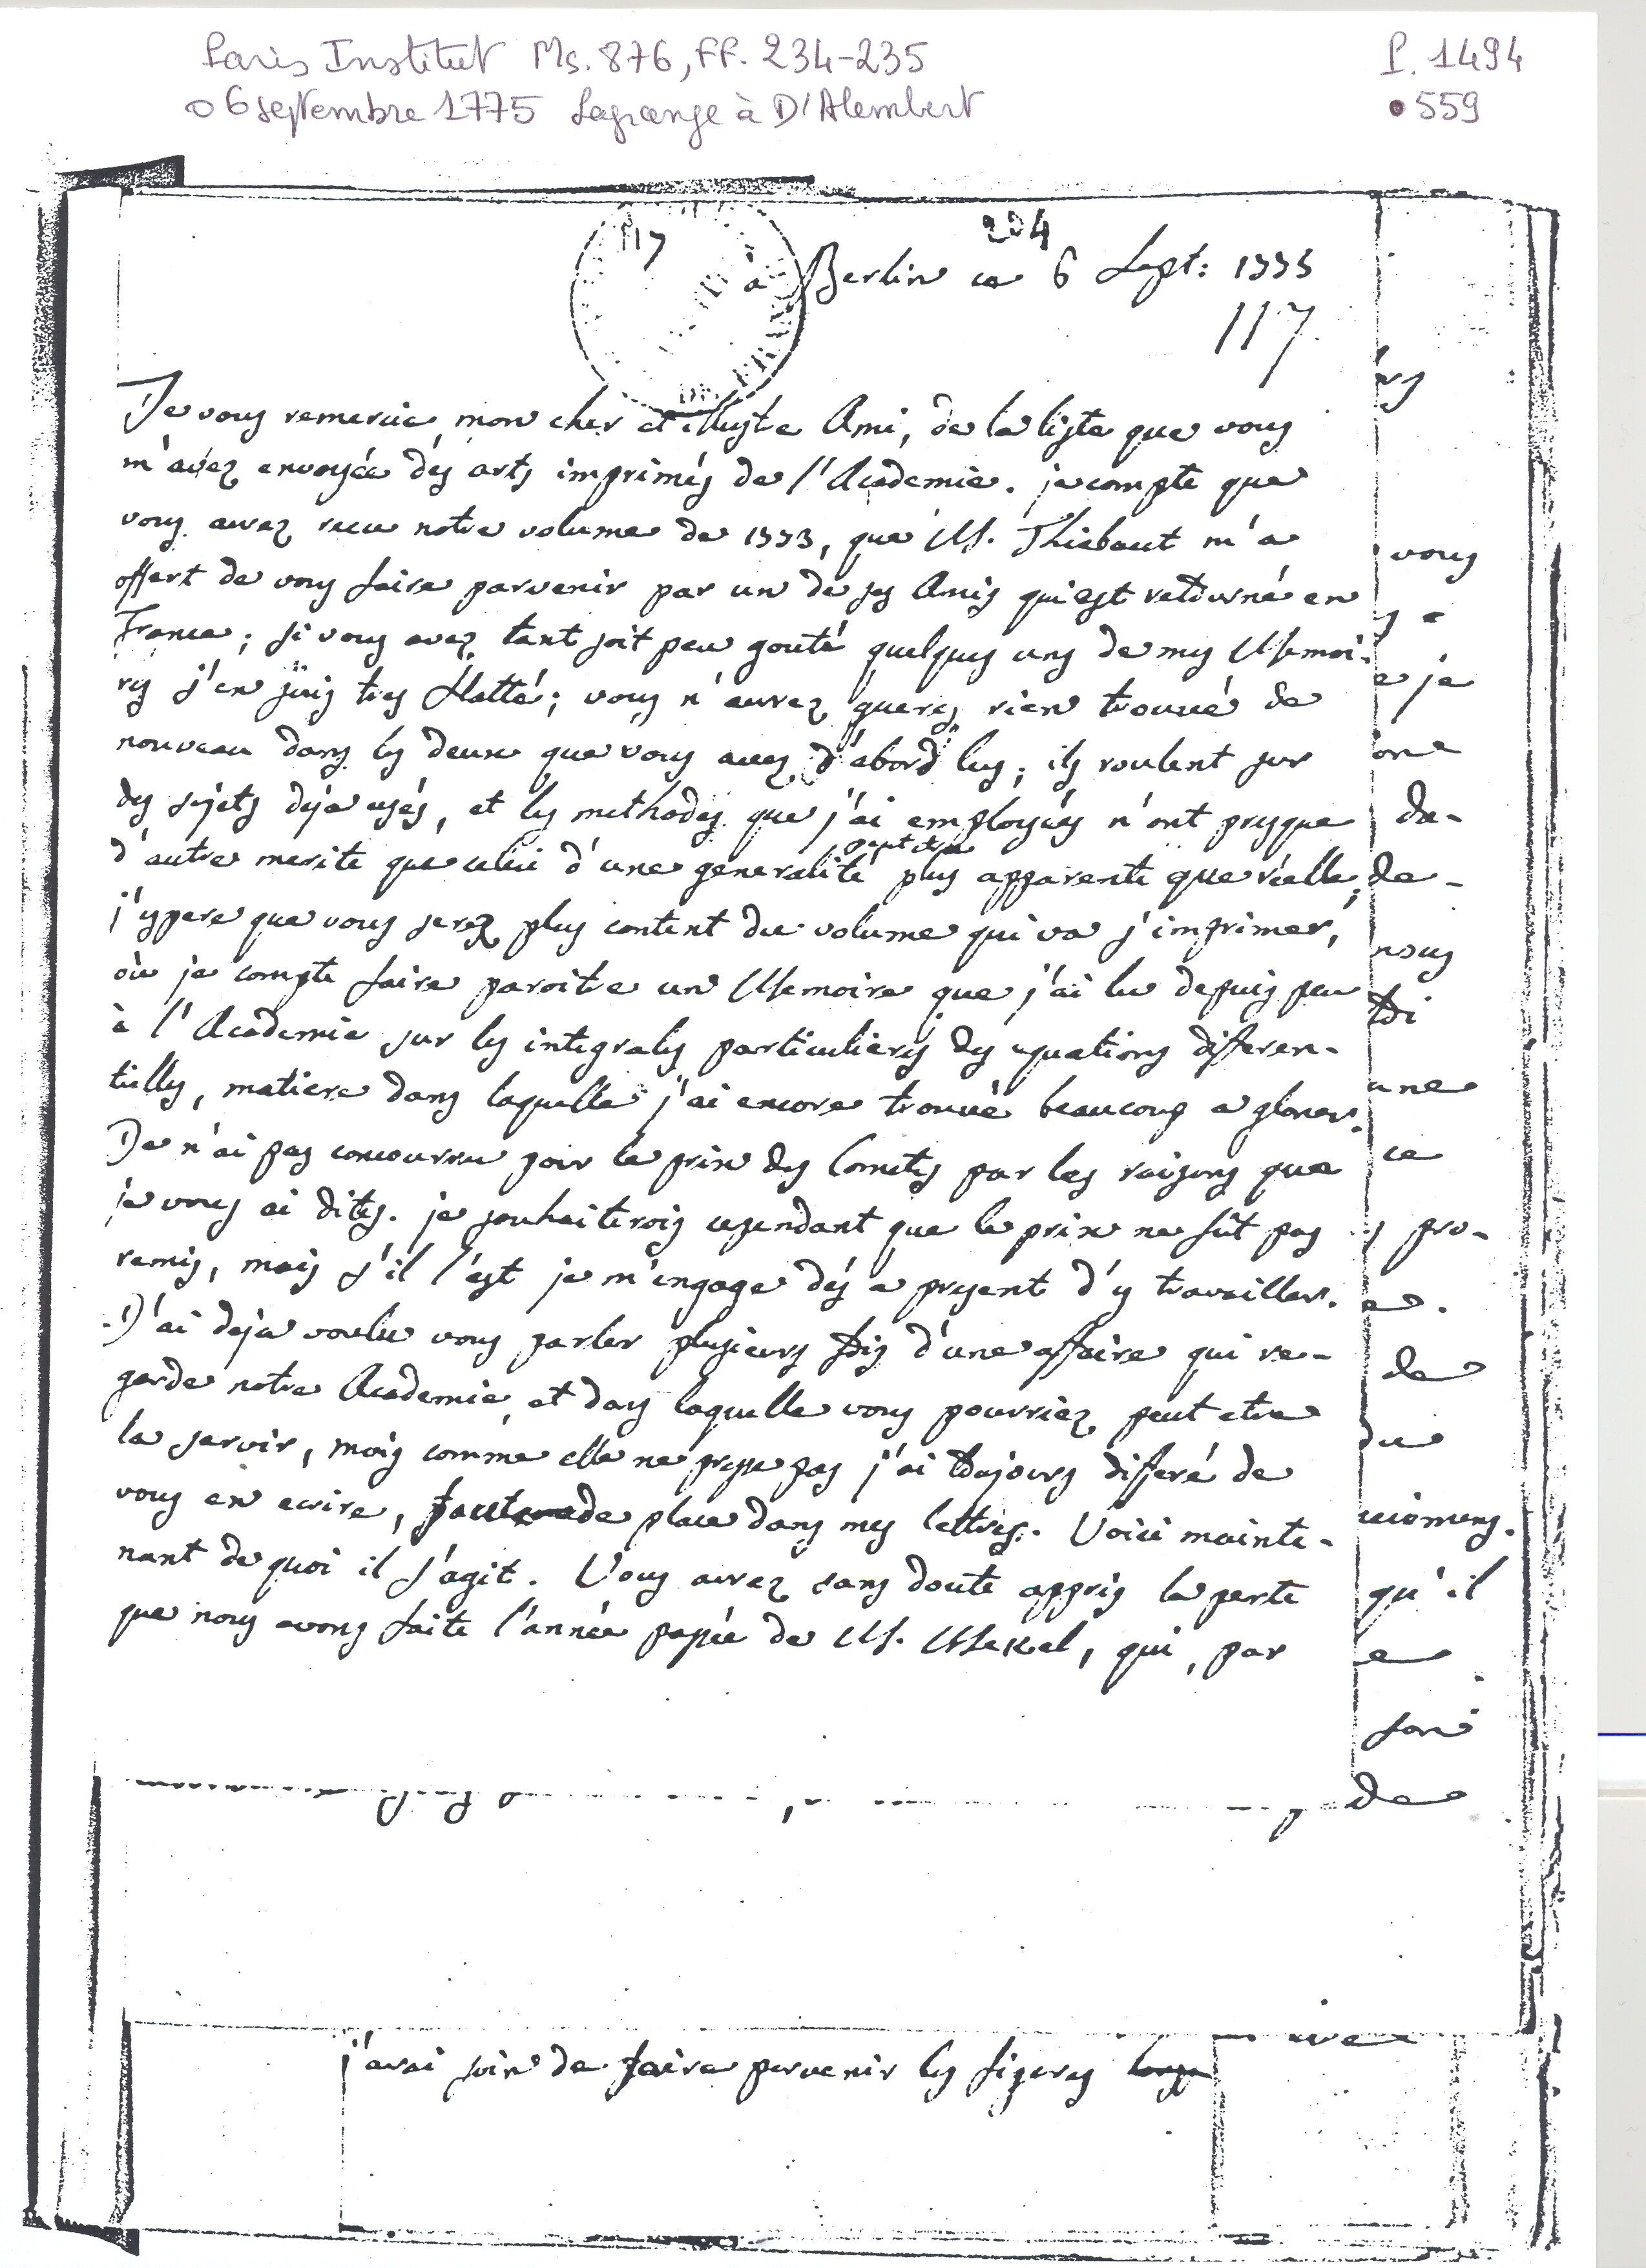 Paris Institut Ms. 876, FF. 234-235
P. 1494
06 septembre 1775 Lagrange à D'Alembert
559
117
234
à Berlin ce 6 Sept: 1775
117
Je vous remercie, mon cher et illustre Ami, de la liste que vous
m'avez envoyée des arts imprimés de l'Academie. je compte que
vous aurez recu notre volume de 1773, que M. Thiebaut m'a
offert de vous faire parvenir par un de ses Amis qui est retourné en
France; si vous avez tant soit peu gouté quelques uns de mes Memoi-
res j'en suis tres flatté; vous n'aurez gueres rien trouvé de
nouveau dans les deux que vous avez d'abord lus; ils roulent sur
des sujets deja usés, et les methodes que j'ai employées n'ont presque
d'autre merite que celui d'une generalité peut etre plus apparente que réelle,
j'espere que vous serez plus content du volume qui va s'imprimer,
où je compte faire paroitre un Memoire que j'ai lu depuis peu
à l'Academie sur les integrales particulieres des equations differen-
tielles, matiere dans laquelle j'ai encore trouvé beaucoup a glaner.
Je n'ai pas concourru pour le prix des Cometes par les raisons que
je vous ai dites. je souhaiterois cependant que le prix ne fût pas
remis, mais s'il l'est je m'engage dés a present d'y travailler.
J'ai deja voulu vous parler plusieurs fois d'une affaire qui re-
garde notre Academie, et dans laquelle vous pourriez peut etre
la servir, mais comme elle ne presse pas j'ai toujours differé de
vous en ecrire, faute de place dans mes lettres. Voici mainte-
nant de quoi il s'agit. Vous aurez sans doute appris la perte
que nous avons faite l'année passée de M. Mekel, qui, par
vous
je
da-
de-
nous
une
ce
pro-
de
du
qu'il
son
de
j'aurai soin de faire parvenir les figures